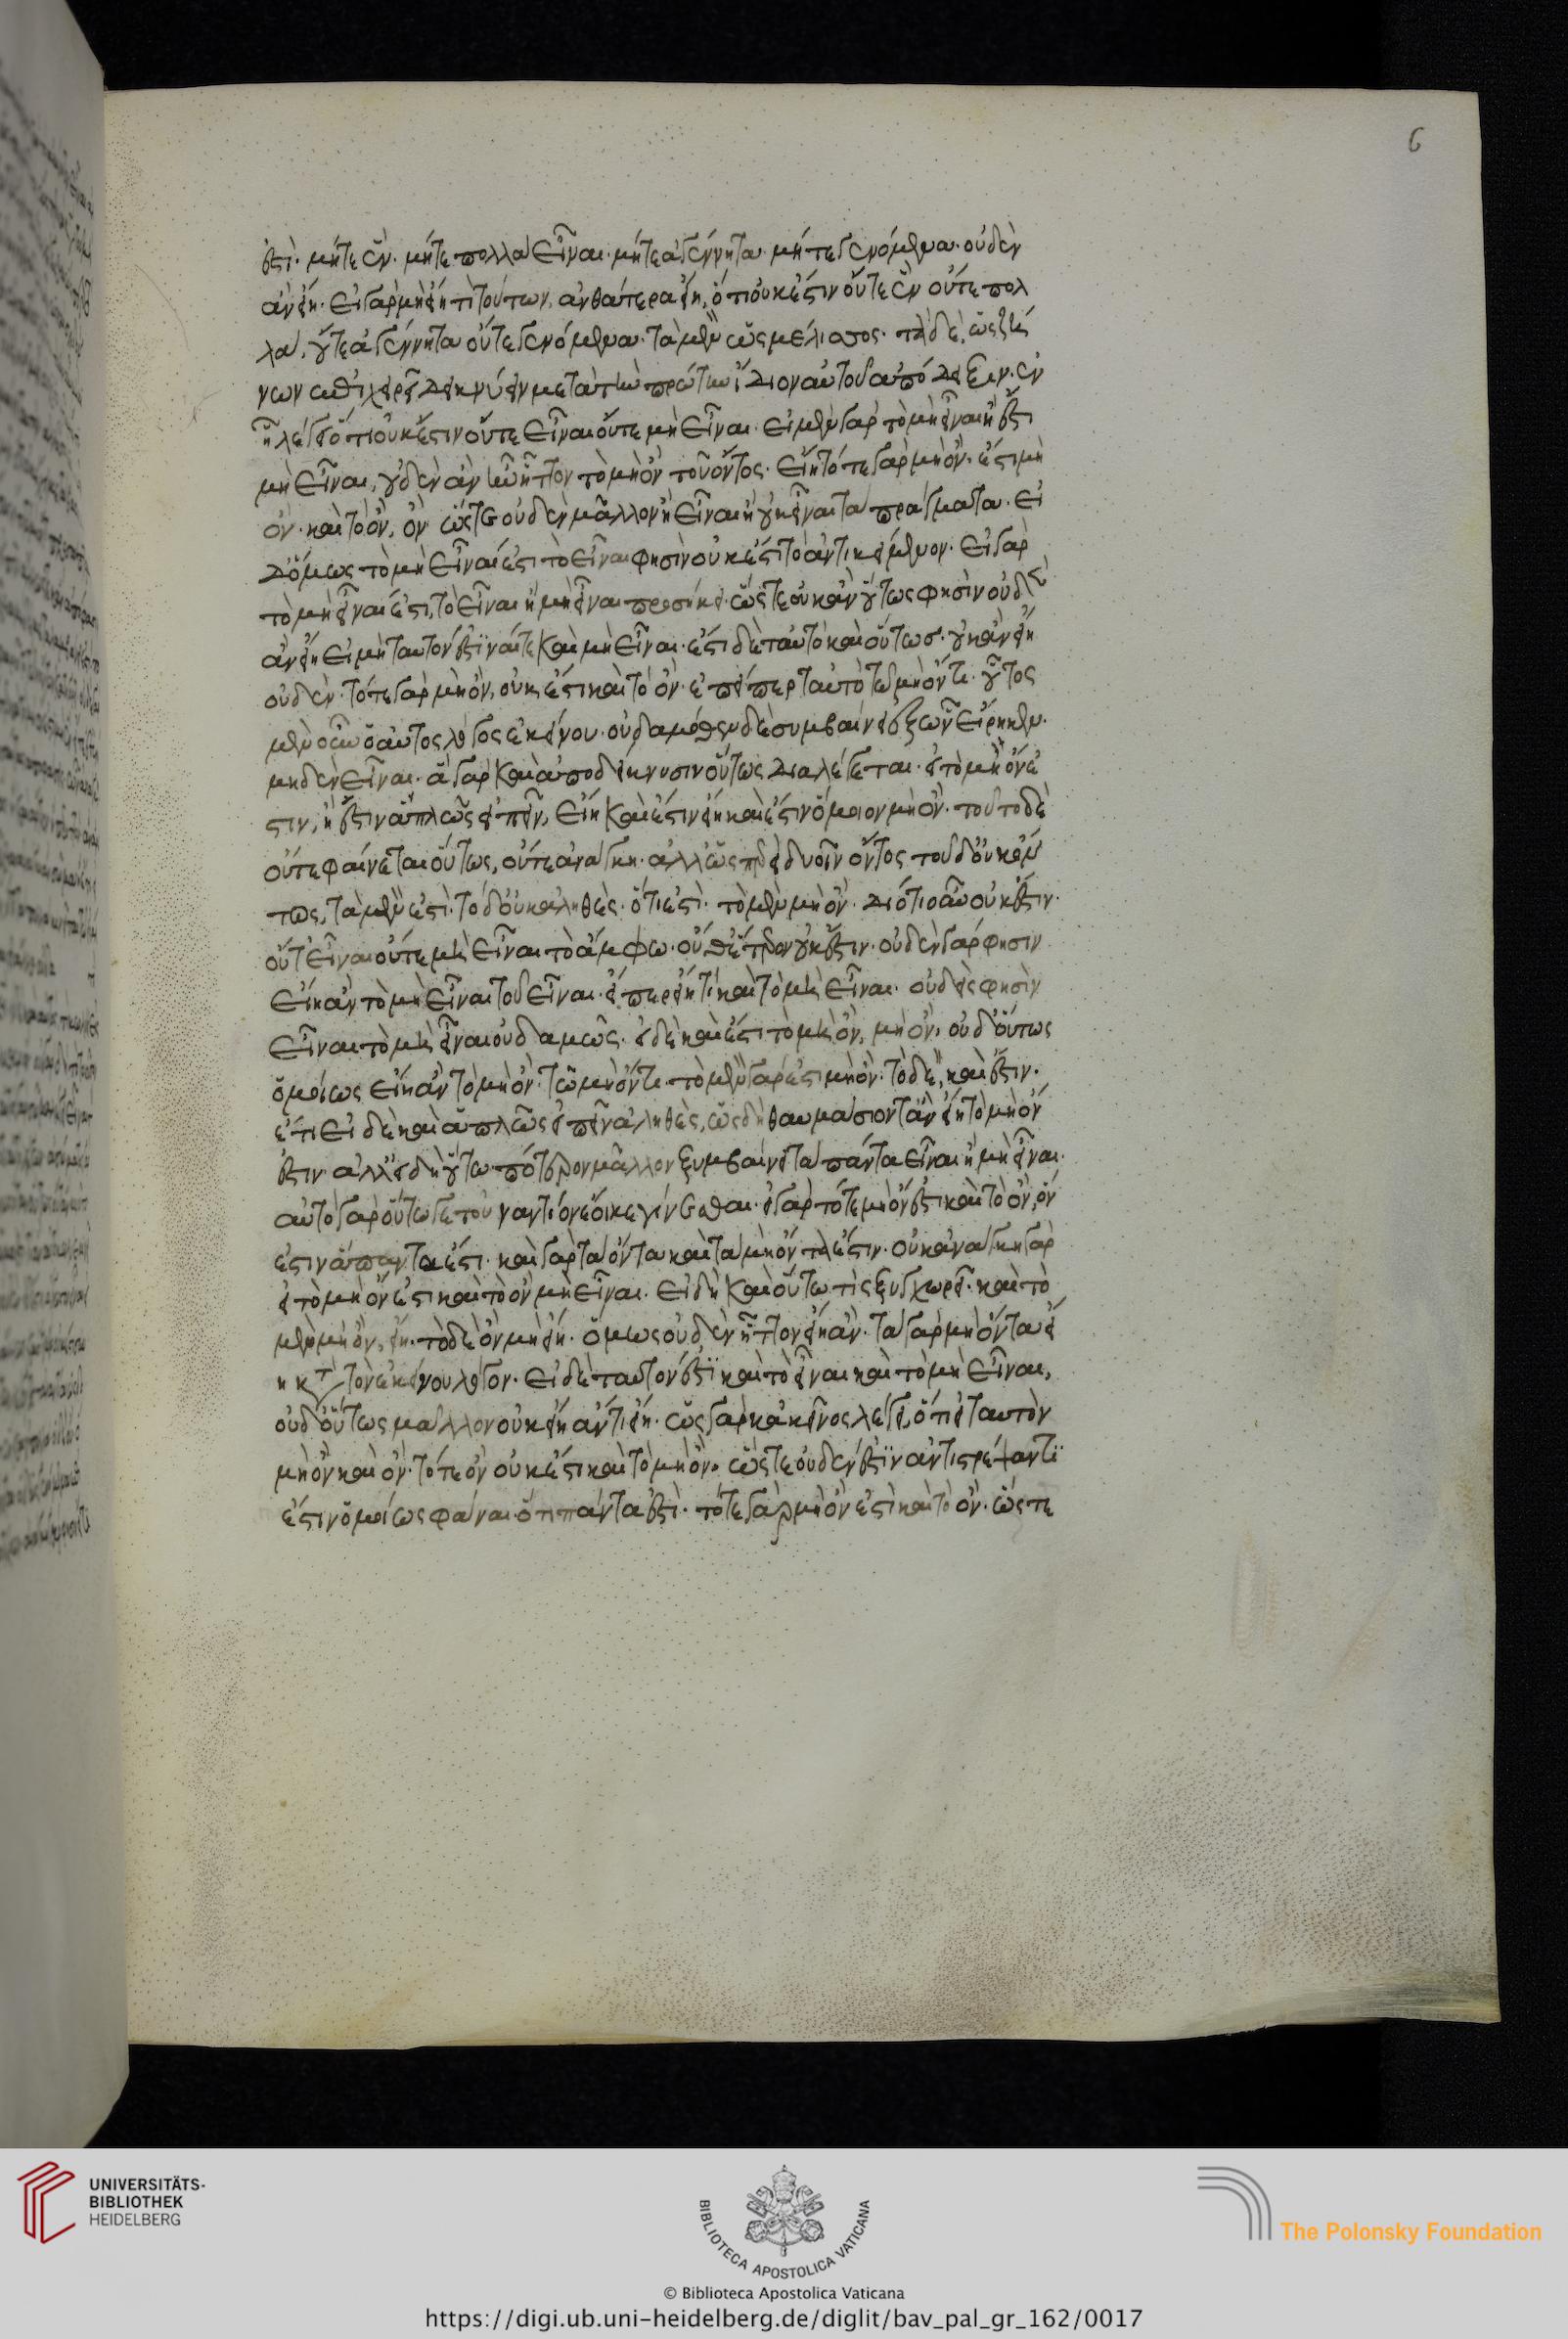 6
ἐστὶ· μήτε ἓν· μήτε πολλὰ εἶναι· μήτε ἀγέννητα· μήτε γενόμενα· οὐδὲν
ἂν εἴη· εἰ γὰρ μὴ εἴη τὶ τούτων, ἂν θάτερα εἴη, ὅτι οὐκ ἔστιν οὔτε ἓν οὔτε πολ
λὰ, οὔτε ἀγέννητα οὔτε γενόμενα· τὰ μὲν ὡς μέλισσος· τὰ δὲ, ὡς ζή
νων ἐπιχειρεῖ δεικνύειν μετὰ τὴν πρώτην ἴδιον αὐτοῦ ἀπόδειξιν· ἐν
ᾗ λέγει ὅτι οὐκ ἔστιν οὔτε εἶναι οὔτε μὴ εἶναι· εἰ μὲν γὰρ τὸ μὴ εἶναι ἢ ἔστι
μὴ εἶναι, οὐδὲν ἂν ἧττον τὸ μὴ ὂν τοῦ ὄντος· εἴη τότε γὰρ μὴ ὂν· ἔστι μὴ
ὂν· καὶ τὸ ὂν, ὂν ὥστε οὐδὲν μᾶλλον ἢ εἶναι ἢ οὐκ εἶναι τὰ πράγματα· εἰ
δ' ὅμως τὸ μὴ εἶναί ἐστι τὸ εἶναι φησὶν οὐκ ἔστι τὸ ἀντικείμενον· εἰ γὰρ
τὸ μὴ εἶναί ἐστι, τὸ εἶναι ἢ μὴ εἶναι προσήκει· ὥστε οὐκ ἂν οὕτως φησὶν οὐδὲν
ἂν εἴη εἰ μὴ ταυτόν ἐστιν εἶναί τε καὶ μὴ εἶναι· ἔστι δὲ ταὐτὸ καὶ οὕτωσ· οὐκ ἂν εἴη
οὐδὲν· τότε γὰρ μὴ ὂν, οὐκ ἔστι καὶ τὸ ὂν· ἐπείπερ ταὐτὸ τῷ μὴ ὄντι· οὗτος
μὲν οὖν ὁ αὐτὸς λόγος ἐκείνου· οὐδαμόθεν δὲ συμβαίνει ἐξ ὧν εἴρηκεν·
μηδὲν εἶναι· ἃ γὰρ καὶ ἀποδείκνυσιν οὕτως διαλέγεται· εἰ τὸ μὴ ὄν ἐ
στιν, ἢ ἔστιν ἁπλῶς εἰπεῖν, εἴη καὶ ἔστιν εἴη καὶ ἔστιν ὅμοιον μὴ ὂν· τοῦτο δὲ
οὔτε φαίνεται οὕτως, οὔτε ἀνάγκη· ἀλλ' ὡσπερεὶ δυοῖν ὄντος τοῦ δ' οὐκ ὄν
τος, τὰ μὲν ἐστὶ· τὸ δ' οὐκ ἀληθὲς· ὅτι ἐστὶ· τὸ μὲν μὴ ὂν· διότι οὖν οὐκ ἔστιν·
οὔτ' εἶναι οὔτε μὴ εἶναι τὸ ἄμφω· οὐθέτερον οὐκ ἔστιν· οὐδὲν γάρ φησιν
εἴη ἂν τὸ μὴ εἶναι τοῦ εἶναι· εἴπερ εἴη τὶ καὶ τὸ μὴ εἶναι· οὐδείς φησὶν
εἶναι τὸ μὴ εἶναι οὐδαμῶς· εἰ δὲ καὶ ἔστι τὸ μὴ ὂν, μὴ ὂν, οὐδ' οὕτως
ὁμοίως εἴη ἂν τὸ μὴ ὂν· τῷ μὴ ὄντι· τὸ μὲν γάρ ἐστι μὴ ὂν· τὸ δὲ, καὶ ἔστιν·
ἔτι εἰ δὲ καὶ ἁπλῶς εἰπεῖν ἀληθὲς, ὡς δὴ θαυμάσιόν τ' ἂν εἴη τὸ μὴ ὄν
ἐστιν· ἀλλ' εἰ δὴ οὕτω πότερον μᾶλλον ξυμβαίνει τὰ πάντα εἶναι ἢ μὴ εἶναι·
αὐτὸ γὰρ οὕτω γε τοὐναντίον ἔοικε γίνεσθαι· εἰ γὰρ τότε μὴ ὄν ἐστι καὶ τὸ ὂν, ὄν
ἐστιν ἅπαντα ἔστι· καὶ γὰρ τὰ ὄντα καὶ τὰ μὴ ὄντα ἔστιν· οὐκ ἀνάγκη γὰρ
εἰ τὸ μὴ ὄν ἐστι καὶ τὸ ὂν μὴ εἶναι· εἰ δὴ καὶ οὕτω τὶς ξυγχωρεῖ· καὶ τὸ
μὲν μὴ ὂν, εἴη· τὸ δὲ ὂν μὴ εἴη· ὅμως οὐδὲν ἧττον εἴη ἂν· τὰ γὰρ μὴ ὄντα εἴ
η κατὰ τὸν ἐκείνου λόγον· εἰ δὲ ταυτόν ἐστι καὶ τὸ εἶναι καὶ τὸ μὴ εἶναι,
οὐδ' οὕτως μᾶλλον οὐκ εἴη ἄν τι εἴη· ὡς γὰρ κἀκεῖνος λέγει, ὅτι εἰ ταυτὸν
μὴ ὂν καὶ ὂν· τότε ὂν οὐκ ἔστι καὶ τὸ μὴ ὂν· ὥστε οὐδέν ἐστιν ἀντιστρέψαντι
ἔστιν ὁμοίως φάναι ὅτι πάντα ἐστὶ· τότε γὰρ μὴ ὂν ἐστὶ καὶ τὸ ὂν· ὥστε
UNIVERSITÄTS-
BIBLIOTHEK
HEIDELBERG
BIBLIOTECA APOSTOLICA VATICANA
The Polonsky Foundation
© Biblioteca Apostolica Vaticana
https://digi.ub.uni-heidelberg.de/diglit/bav_pal_gr_162/0017